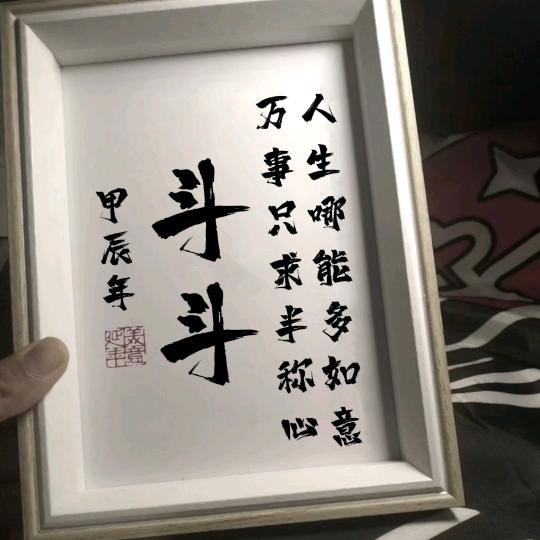 人生哪能多如意
万事只求半称心
斗斗
甲辰年
美意延年